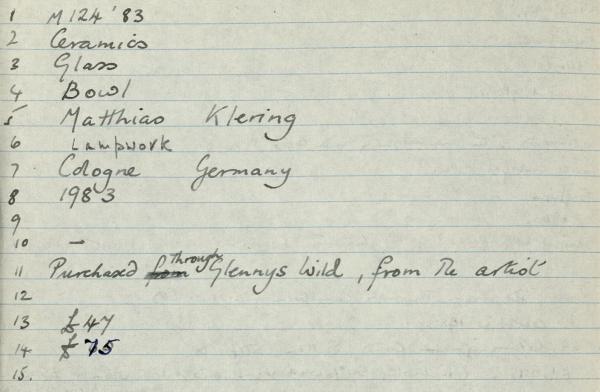 1 M124 '83
2 Ceramics
3 Glass
4 Bowl
5 Matthias Klering
6 Lampwork
7 Cologne Germany
8 1983
9
10 —
11 Purchased from through Glennys Wild, from The artist
12
13 £47
14 £75
15.